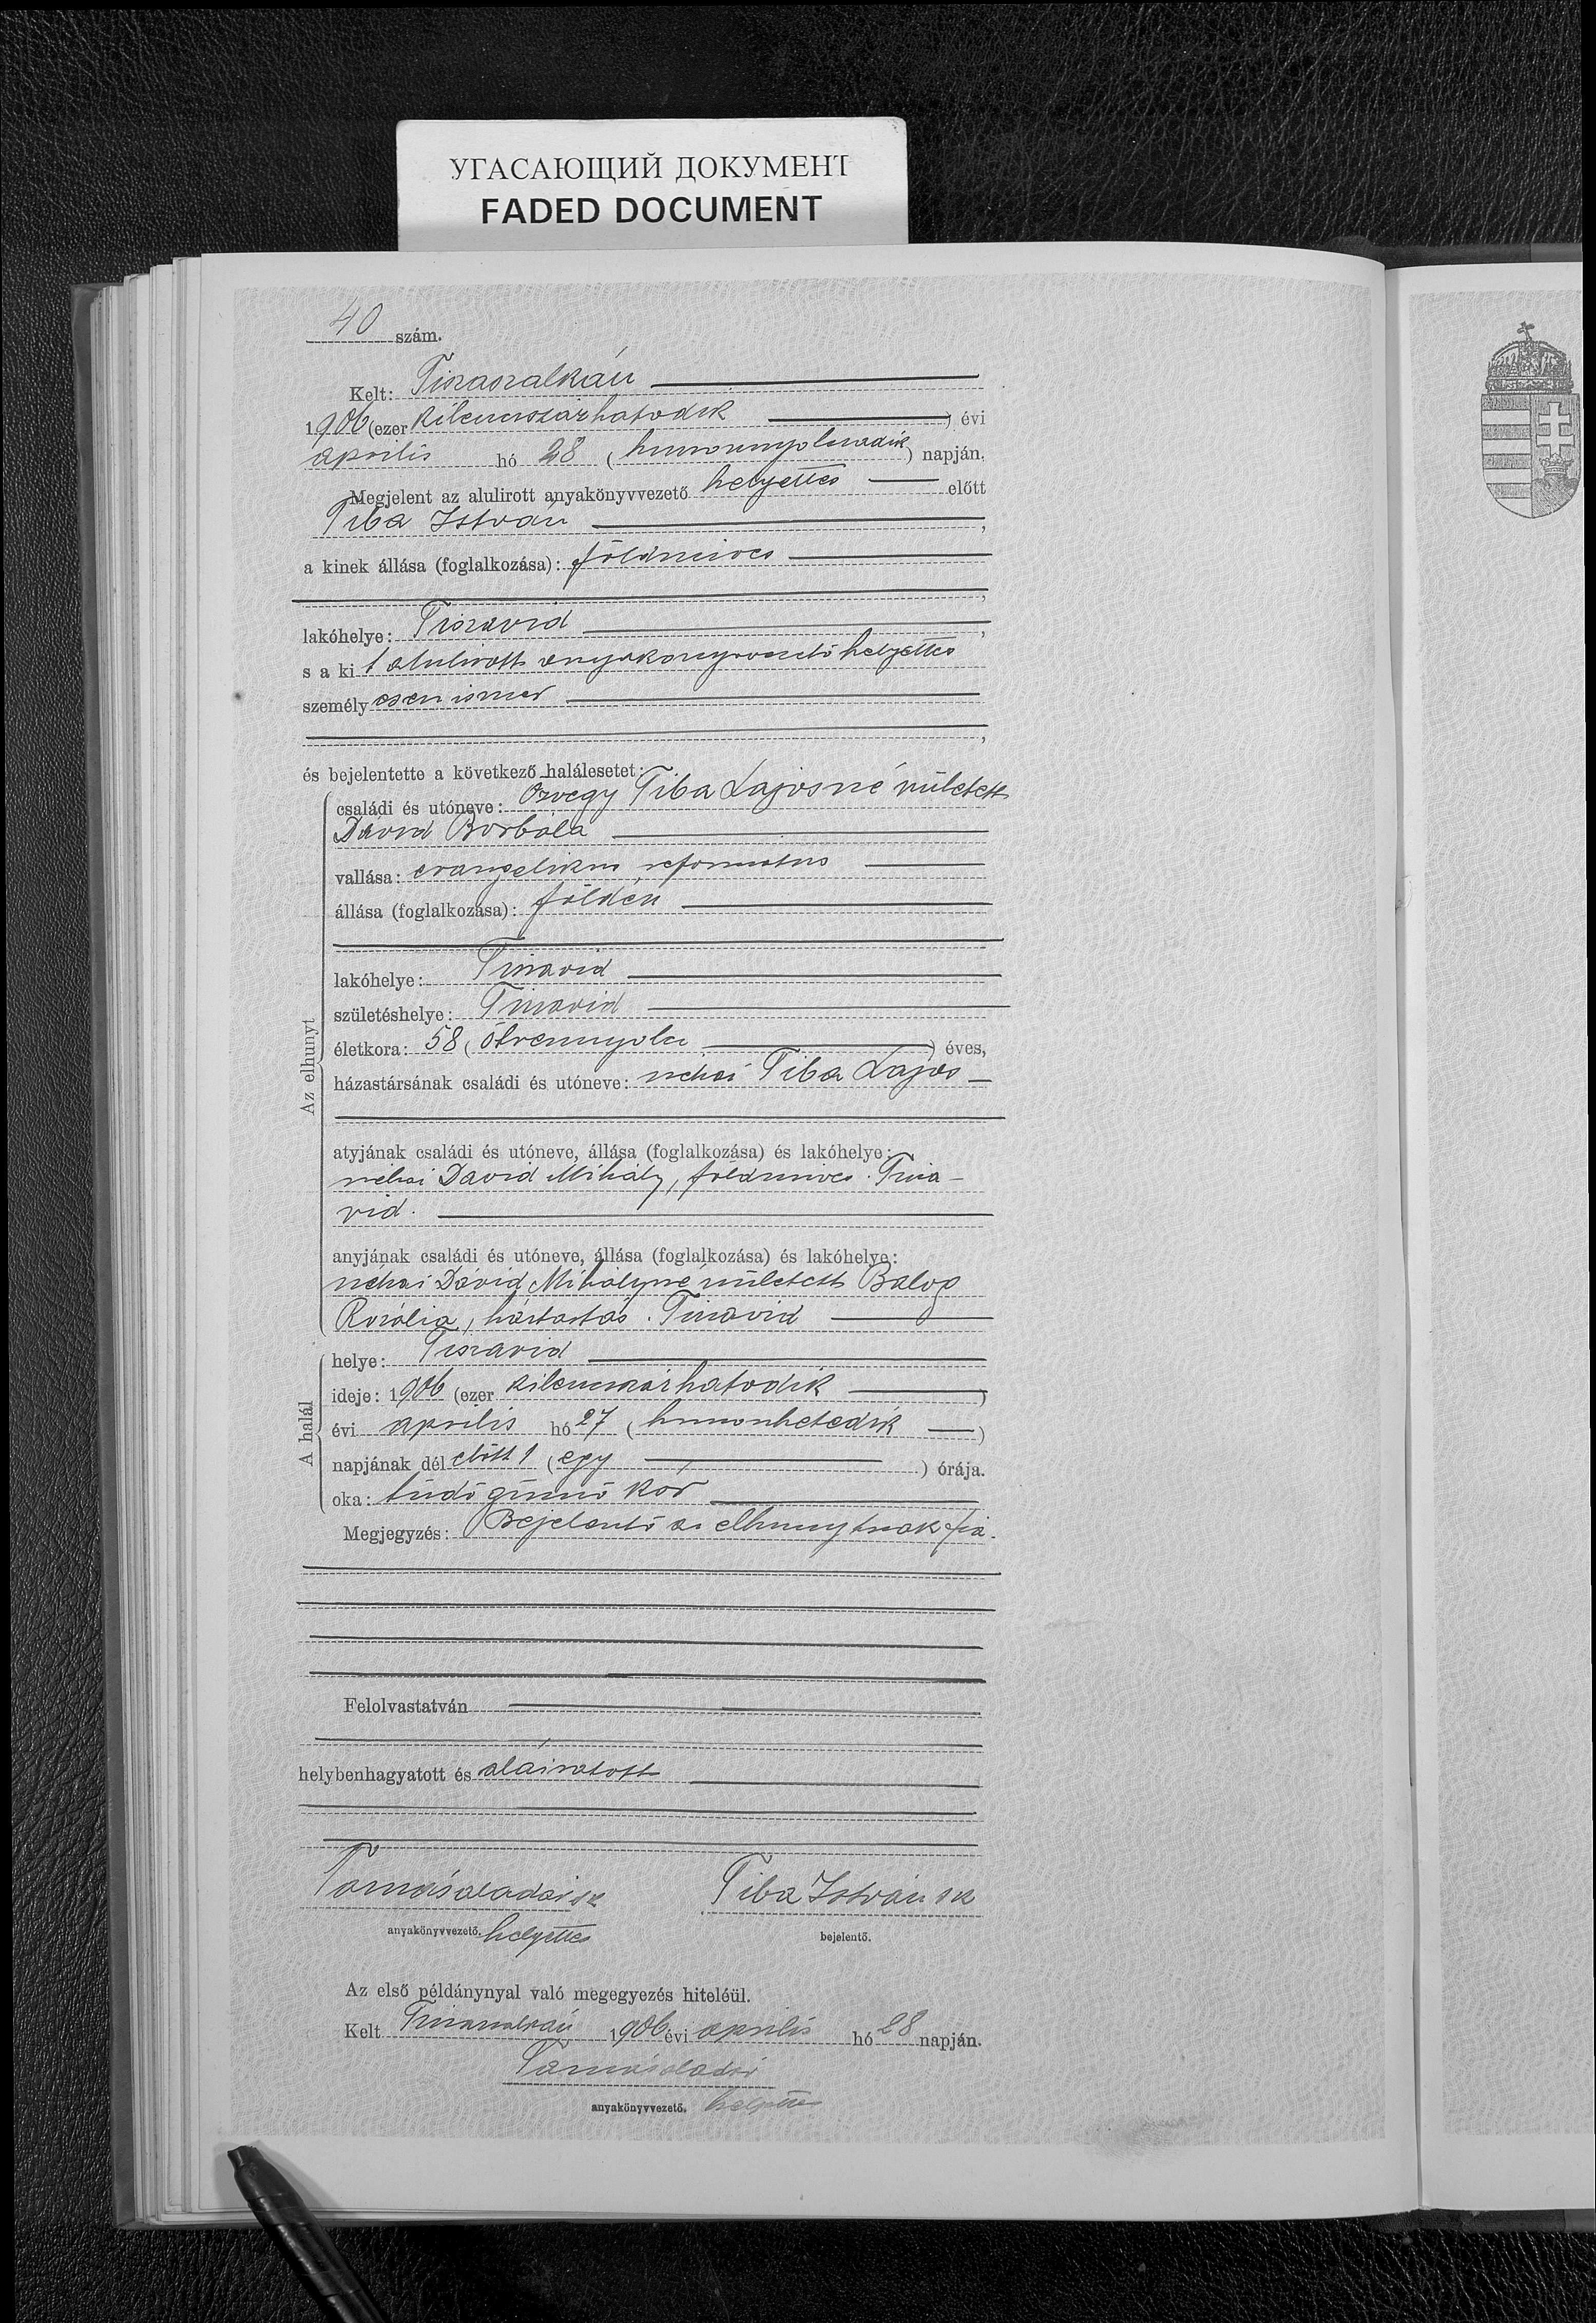 УГАСАЮЩИЙ ДОКУМЕНТ
FADED DOCUMENT
40 szám.
Kelt: Tiszaszalkán
1906 (ezer kilencszázhatodik) évi
április hó 28 (huszonnyolcadik) napján.
Megjelent az alulirott anyakönyvvezető helyettes előtt
Tiba István,
a kinek állása (foglalkozása): földmives
,
lakóhelye: Tiszavid,
s a kit alulirott anyakönyvvezető helyettes
személyesen ismer
,
és bejelentette a következő halálesetet:
Az elhunyt
családi és utóneve: Özvegy Tiba Lajosné született
Dávid Borbála
vallása: evangelikus reformatus
állása (foglalkozása):
lakóhelye: Tiszavid
születéshelye: Tiszavid
életkora: 58 (ötvennyolc) éves,
házastársának családi és utóneve: néhai Tiba Lajos
atyjának családi és utóneve, állása (foglalkozása) és lakóhelye:
néhai Dávid Mihály, földmives. Tisza-
vid.
anyjának családi és utóneve, állása (foglalkozása) és lakóhelye:
néhai Dávid Mihályné született Balog
Rozália, háztartás. Tiszavid
A halál
helye: Tiszavid
ideje: 1906 (ezer kilencszázhatodik)
évi április hó 27 (huszonhetedik)
napjának dél előtt 1 (egy) órája.
oka: tüdőgümőkór
Megjegyzés: Bejelentő az elhunytnak fia.
Felolvastatván
helybenhagyatott és aláiratott
Tamás Aladár sk
Tiba István sk
anyakönyvvezető. helyettes
bejelentő.
Az első példánynyal való megegyezés hiteléül.
Kelt Tiszaszalkán 1906 évi április hó 28 napján.
Tamás Aladár
anyakönyvvezető. helyettes